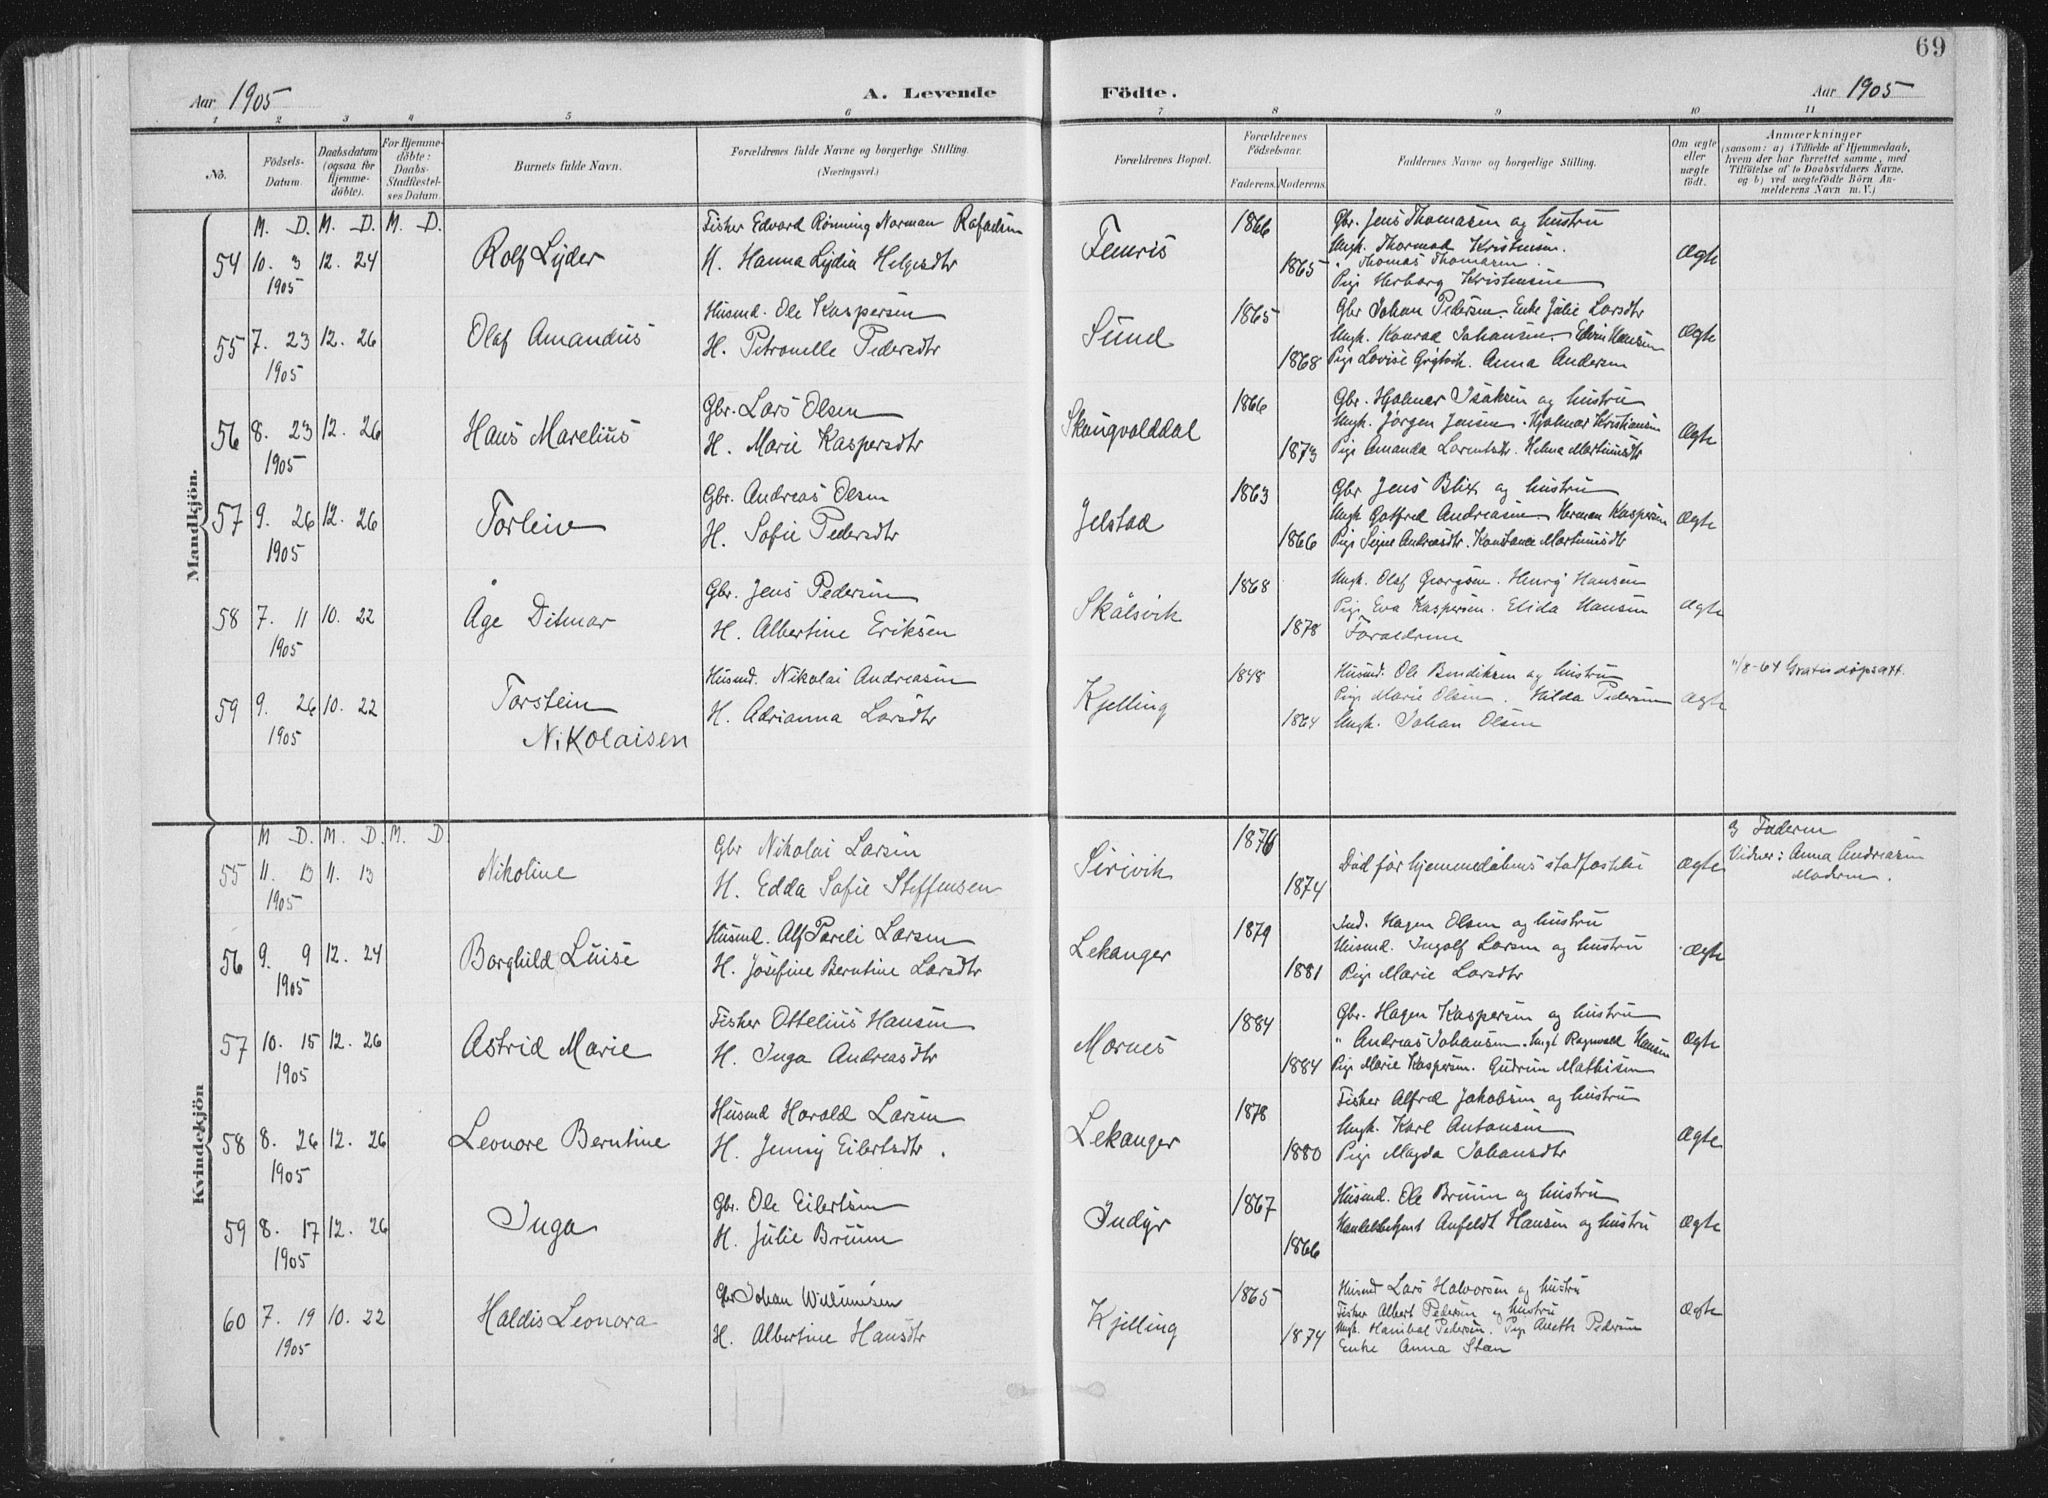 69
Aar 1905
A. Levende Födte.
Aar 1905
1 2 3 4 5 6 7 8 9 10 11
No. Födsels-Datum. Daabsdatum (ogsaa for Hjemme-döbte). For Hjemme-döbte: Daabs-Stadfæstel-ses Datum. Barnets fulde Navn. Forældrenes fulde Navne og borgerlige Stilling. (Næringsvei.) Forældrenes Bopæl. Forældrenes Födselsaar. Faderens. Moderens. Faddernes Navne og borgerlige Stilling. Om ægte eller uægte födt. Anmærkninger (saasom: a) i Tilfælde af Hjemmedaab, hvem der har forrettet samme, med Tilföielse af to Daabsvidners Navne, og b) ved uægtefödte Börn An-melderens Navn m. V.)
Mandkjön.
M. D. M. D. M. D.
54 10. 3 1905 12. 24 Rolf Lyder
Fisher Edvard Rönning Norman Rafaelsen
H. Hanna Lydia Helgesdtr
Femris 1866 1865
Gbr. Jens Thomasen og hustru
Ungk. Thormod Kristensen.
" Thomas Thomasen.
Pige Herborg Kristensen
Ægte
55 7. 23 1905 12. 26 Olaf Amandus
Husmd. Ole Kaspersen
H. Petronelle Pedersdtr
Sund 1865 1868
Gbr Johan Pedersen. Enke Julie Larsdtr
Ungk. Konrad Johansen. Edvin Hansen
Pige Lovise Grytvik. Anna Andersen
Ægte
56 8. 23 1905 12. 26 Hans Marelius
Gbr. Lars Olsen
H. Marie Kaspersdtr
Skaugvolddal 1866 1873
Gbr. Hjalmar Isaksen og hustru
Ungk. Jörgen Jensen. Hjalmar Kristiansen
Pige Amanda Lorentsdtr. Helma Martinusdtr
Ægte
57 9. 26 1905 12. 26 Torleiv
Gbr. Andreas Olsen
H. Sofie Pedersdtr
Jelstad 1863 1866
Gbr Jens Blix og hustru
Ungk Gotfred Andreasen. Herman Kaspersen
Pige Signe Andreasdtr. Konstance Martinusdtr
Ægte
58 7. 11 1905 10. 22 Åge Ditmar
Gbr. Jens Pedersen
H. Albertine Eriksen
Skålsvik 1868 1878
Ungk. Olaf Georgsen. Henry Hansen
Pige Eva Kaspersen. Elida Hansen
Foraeldrene
Ægte
59 9. 26 1905 10. 22 Torstein
Nikolaisen
Husmd. Nikolai Andreasen
H. Adrianna Larsdtr
Kjelling 1848 1864
Husmd. Ole Bendiksen og hustru
Pige Marie Olsen. Valda Pedersen
Ungk. Johan Olsen
Ægte
11/8-64 Gratis dåpsatt.
Kvindekjön
M D. M. D. M. D.
55 11. 13 1905 11. 13 Nikoline
Gbr Nikolai Larsen
H. Edda Sofie Steffensen
Sirivik 1876 1874
Död før hjemmedåbens stadfæstelse
Ægte
Faderen
Vidner: Anna Andreasen
Moderen.
56 9. 9 1905 12. 24 Borghild Luise
Husmd. Alf Pareli Larsen
H. Josefine Berntine Larsdtr
Lekanger 1879 1881
Ind. Hagen Olsen og hustru
Husmd. Ingolf Larsen og hustru
Pige Marie Larsdtr
Ægte
57 10. 15 1905 12. 26 Astrid Marie
Fisker Ottelius Hansen
H. Inga Andreasdtr
Mornes 1884 1884
Gbr. Hagen Kaspersen og hustru
" Andreas Johansen. Ungk Ragnvald Hansen
Pige Marie Kaspersen. Gudrun Mathisen
Ægte
58 8. 26 1905 12. 26 Leonore Berntine
Husmd Harald Larsen
H. Jenny Eilertsdtr.
Lekanger 1878 1880
Fisker Alfred Jakobsen og hustru
Ungk. Karl Antonsen
Pige Magda Johansdtr
Ægte
59 8. 17 1905 12. 26 Inga
Gbr. Ole Eilertsen
H. Julie Bruun
Indyr 1867 1866
Husmd. Ole Bruun og hustru
Handelsbetjent Anfeldt Hansen og hustru
Ægte
60 7. 19 1905 10. 22 Haldis Leonora
Gbr Johan Willumsen
H. Albertine Hansdtr
Kjelling 1865 1874
Husmd Lars Halvorsen og hustru
Fisker Albert Pedersen og hustru
Ungk. Hanibal Pedersen. Pige Anette Pedersen
Enke Anna Steen
Ægte